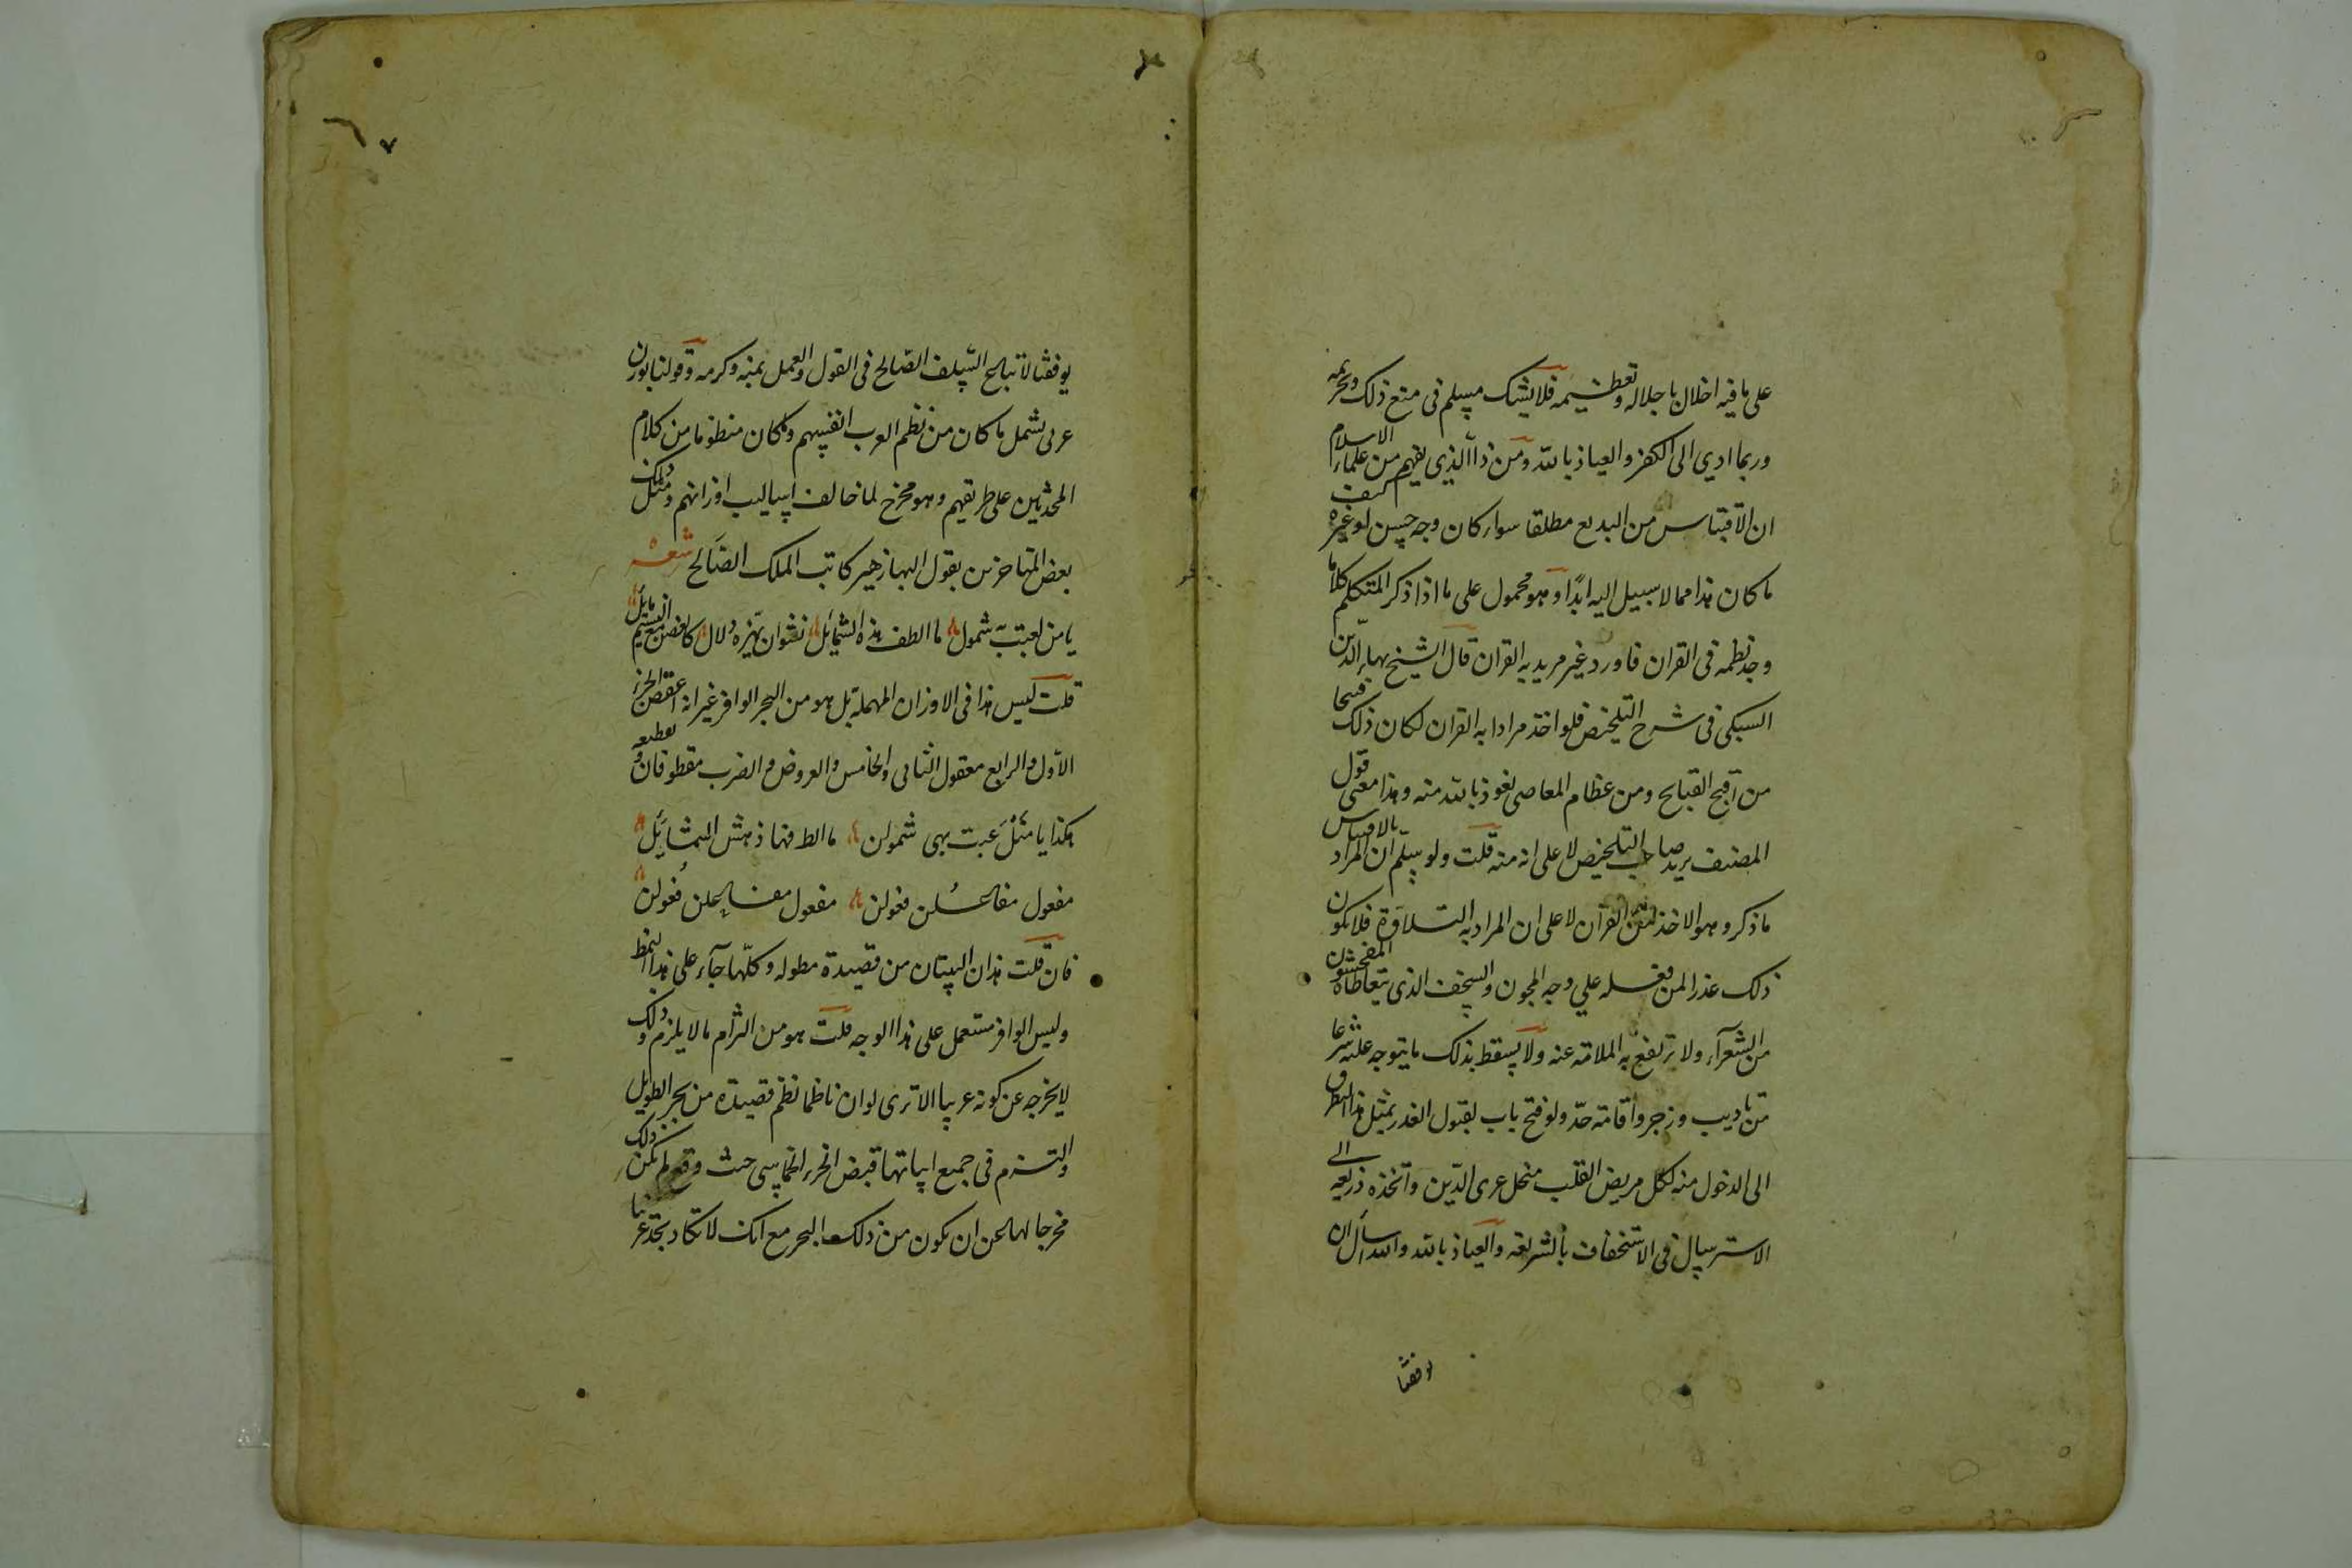 على ما فيه اخلال باجلاله وتعظيمه فلا يشك مسلم فى منع ذلك وتحريمه
وربما ادي الى الكفر والعياذ بالله ومن ذا الذي يفهم من علماء الاسلام
ان الاقتباس من البديع مطلقا سواء كان وجه حسن او غيره كيف
ما كان هذا مما لا سبيل اليه ابدًا وهو محمول على ما اذا ذكر المتكلم كلاما
وجد نظمه فى القران فاورد غير مريد به القران قال الشيخ بهاء الدّين
السبكى فى شرح التلخيص فلو اخذ مرادا به القران لكان ذلك قبيحا
من اقبح القبايح ومن عظام المعاصى نعوذ بالله منه وهذا معنى قول
المصنف يريد صاحب التلخيص لا على انه منه قلت ولو سلّم ان المراد بالاقتباس
ما ذكر وهو الاخذ من القرآن لا على ان المراد به التلاوة فلا يكون
ذلك عذرا لمن فعله علي وجه المجون والسخف الذى يتعاطاه المفحشون
من الشعرآء ولا ترتفع به الملامة عنه ولا يسقط بذلك ما يتوجه عليه شرعا
من تاديب وزجر واقامة حدّ ولو فتح باب لقبول العذر بمثل هذا لتطرق
الى الدخول منه لكل مريض القلب منحل عرى الدّين واتخذه ذريعه الى
الاسترسال فى الاستخفاف بالشريعه والعياذ بالله والله اسأل ان
يوفقنا
يوفقنا لاتباع السّلف الصّالح فى القول والعمل بمنه وكرمه وقولنا بوزن
عربى يشمل ما كان من نظم العرب انفسهم وما كان منظوما من كلام
المحدثين على طريقهم وهو مخرج لما خالف اساليب اوزانهم ومثل ذلك
بعض المتاخرين بقول البها زهير كاتب الملك الصَالح شعر
يا من لعبت به شمول ما الطف هذه الشمائل نشوان يهزه دلال كالغصن مع النسيم مايل
قلت ليس هذا فى الاوزان المهملة بل هو من البحر الوافر غير انه اعقص الجزء
الاوّل والرابع معقول الثانى والخامس والعروض والضرب مقطوفان وتقطيعه
هكذا يا منْلَ عبت بهى شمولن ما الط فها ذهش الشمايَل
مفعول مفاعلن فعولن مفعول مفاعلن فعولن
فان قلت هذان البيتان من قصيدة مطوله وكلّها جآء على هذا النمط
وليس الوافر مستعمل على هذا الوجه قلت هو من التزام ما لا يلزم وذلك
لا يخرجه عن كونه عربيا الا ترى لو ان ناظما نظم قصيدة من بحر الطويل
والتزم فى جميع ابياتها قبض الجزء الخماسى حيث وقع لم يكن ذلك
مخرجا لها عن ان يكون من ذلك البحر مع انك لا تكاد تجد عربيا